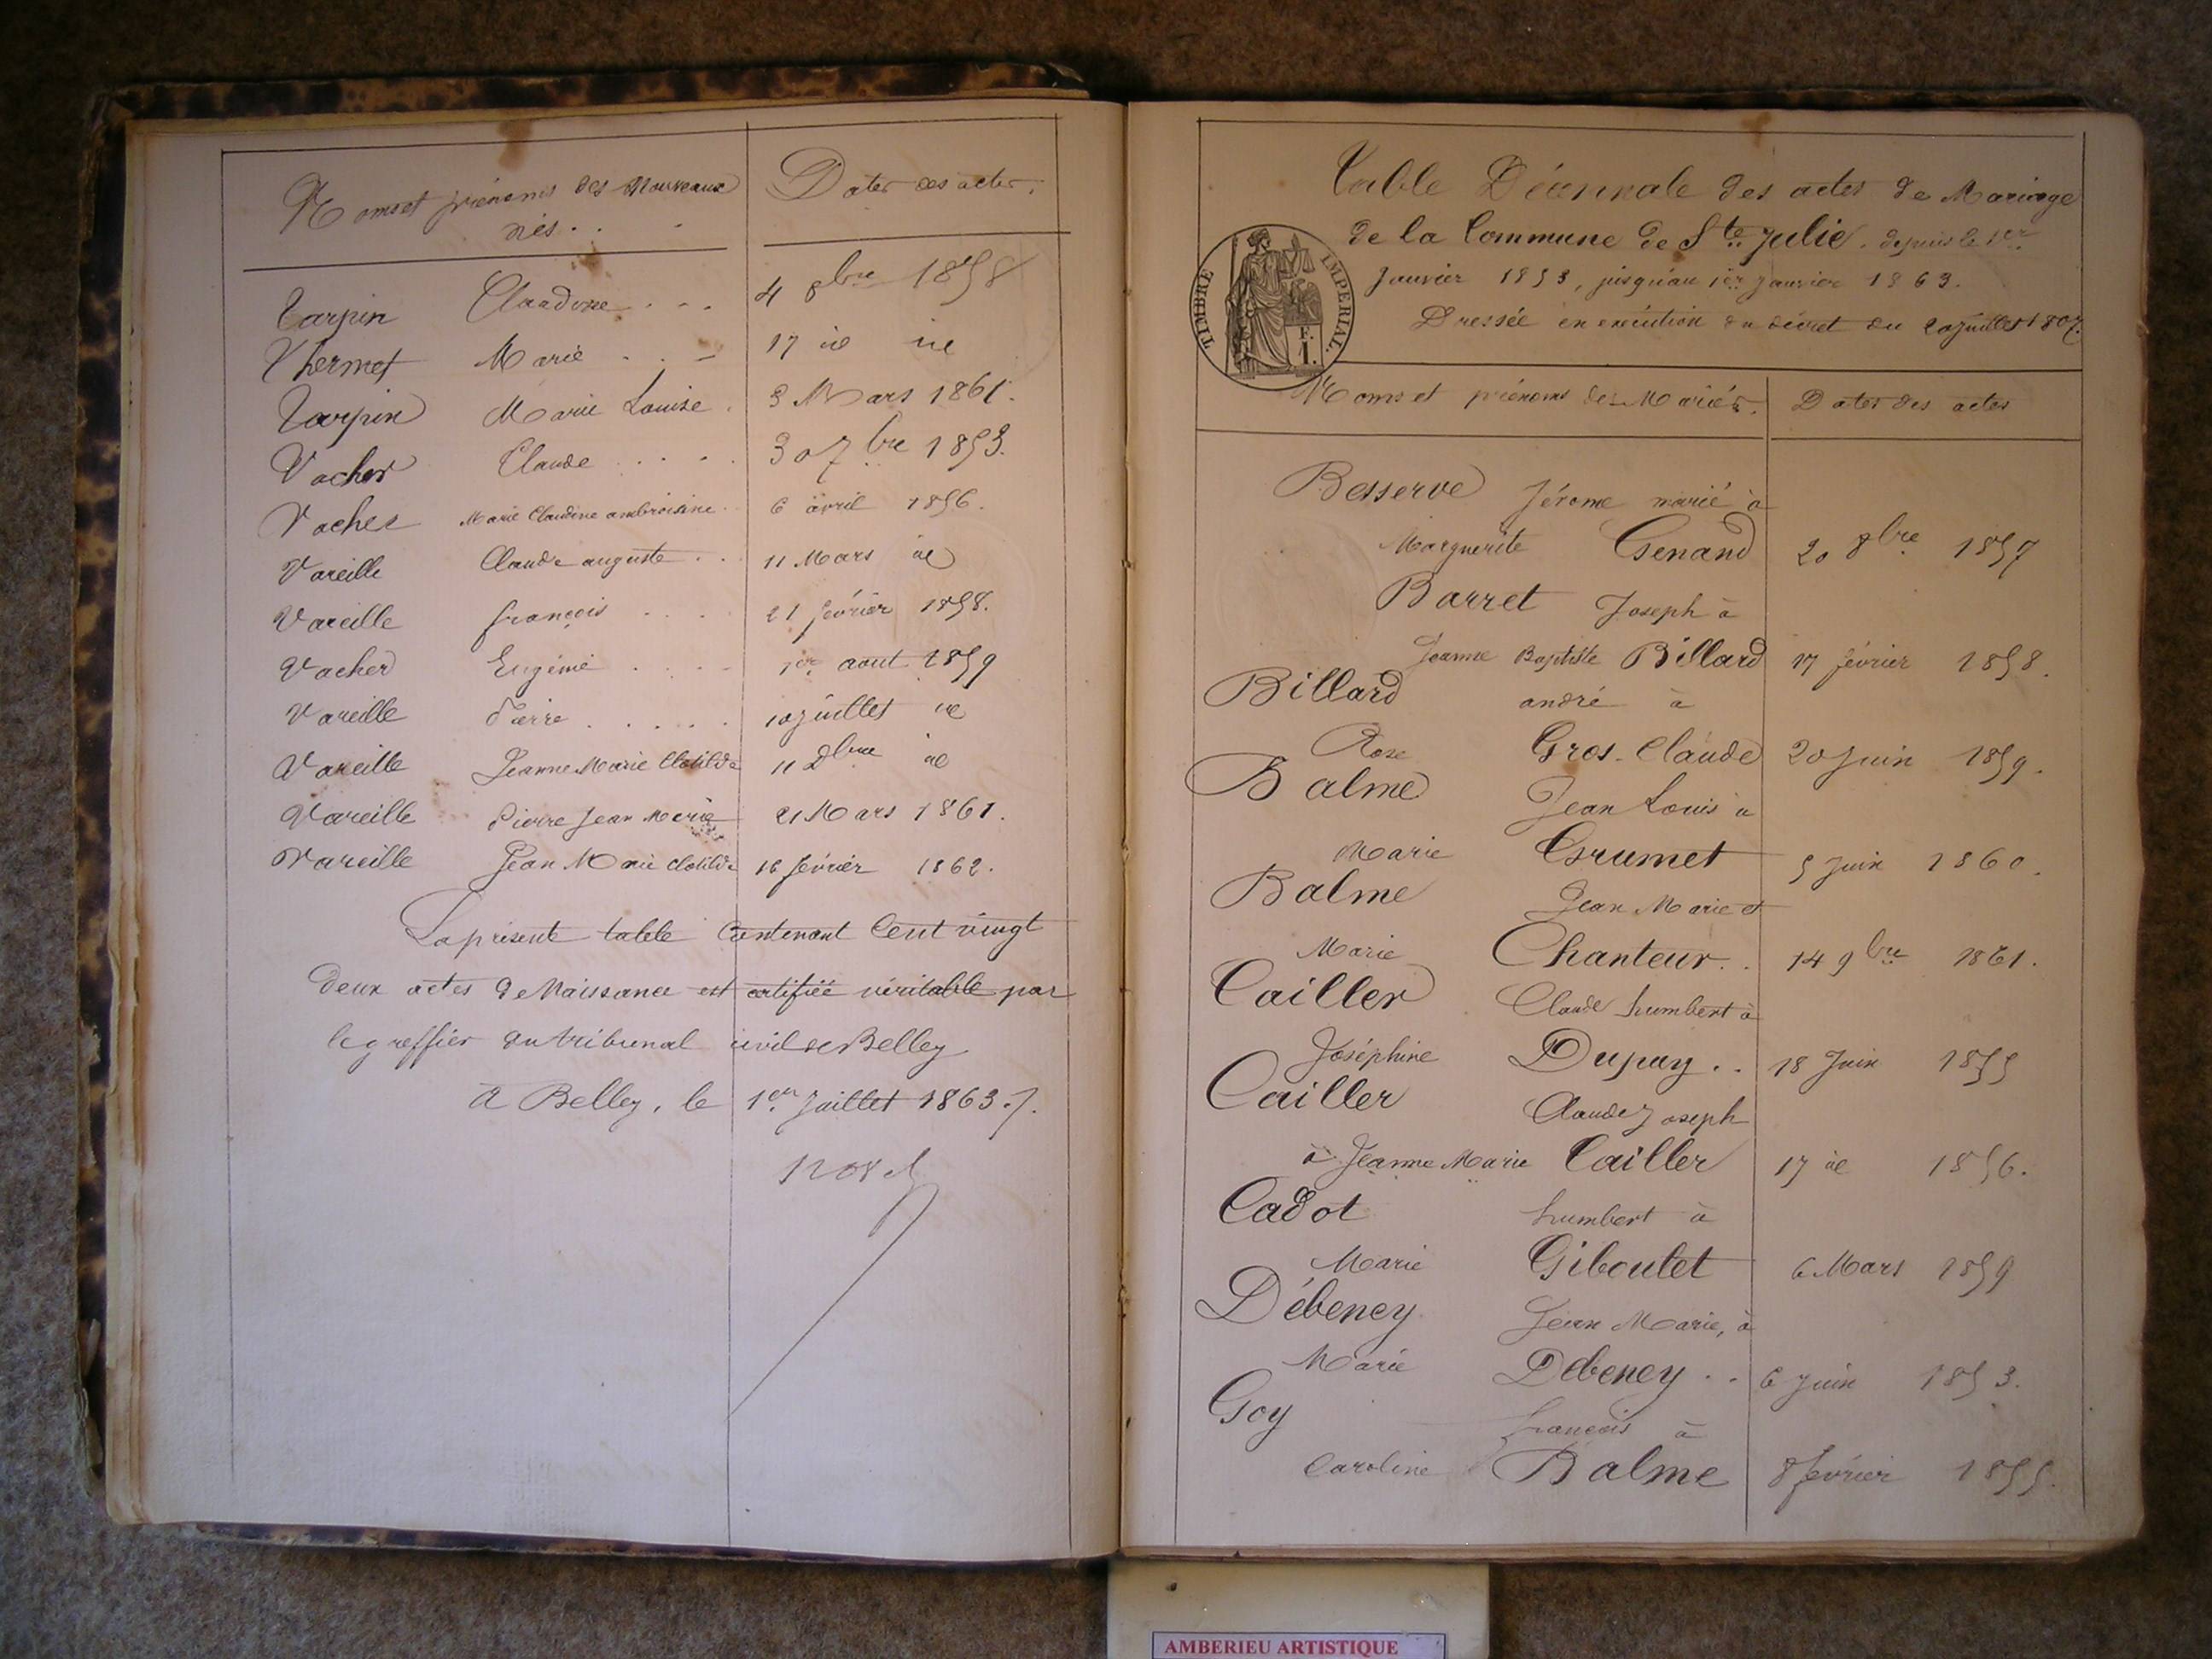 Noms et prénoms des Nouveaux
nés . . .
Dates des actes.
Tarpin Claudone . . . 4 8bre 1858
Thermet Marie . . . 17 id id
Tarpin Marie Louise . 3 Mars 1861.
Vacher Claude . . . . 30 7bre 1853.
Vacher Marie Claudine ambroisine . 6 avril 1856.
Vareille Claude auguste . . 11 Mars id
Vareille françois . . . 21 février 1858.
Vacher Eugénie . . . . 1er aout 1859
Vareille Pierre . . . . . 10 juillet id
Vareille Jeanne Marie Clotilde 11 Xbre id
Vareille Pierre Jean Marie 21 Mars 1861.
Vareille Jean Marie Clotilde 16 février 1862.
La présente table Contenant Cent vingt
deux actes de Naissance est certifiée véritable par
le greffier du tribunal civil de Belley
A Belley, le 1er Juillet 1863 ./.
Table Décennale des actes de Mariage
de la Commune de Ste Julie, depuis le 1er
Janvier 1853, jusqu'au 1er Janvier 1863.
Dressée en exécution du décret du 20 juillet 1807.
TIMBRE IMPERIAL.
F.
I.
Noms et prénoms des Mariés. Dates des actes
Besserve Jérome marié à
Marguerite Genand 20 8bre 1857
Barret Joseph à
Jeanne Baptiste Billard 17 février 1858.
Billard andré à
Rose Gros-Claude 20 Juin 1859.
Balme Jean Louis à
Marie Grumet 5 Juin 1860.
Balme Jean Marie et
Marie Chanteur . . 14 9bre 1861.
Cailler Claude humbert à
Joséphine Dupuy . . 18 Juin 1855
Cailler Claude Joseph
à Jeanne Marie Cailler 17 id 1856.
Cadot humbert à
Marie Giboulet 6 Mars 1859
Débeney Jean Marie, à
Marie Debeney . . 6 Juin 1853.
Goy françois à
Caroline Balme 8 février 1855.
AMBERIEU ARTISTIQUE